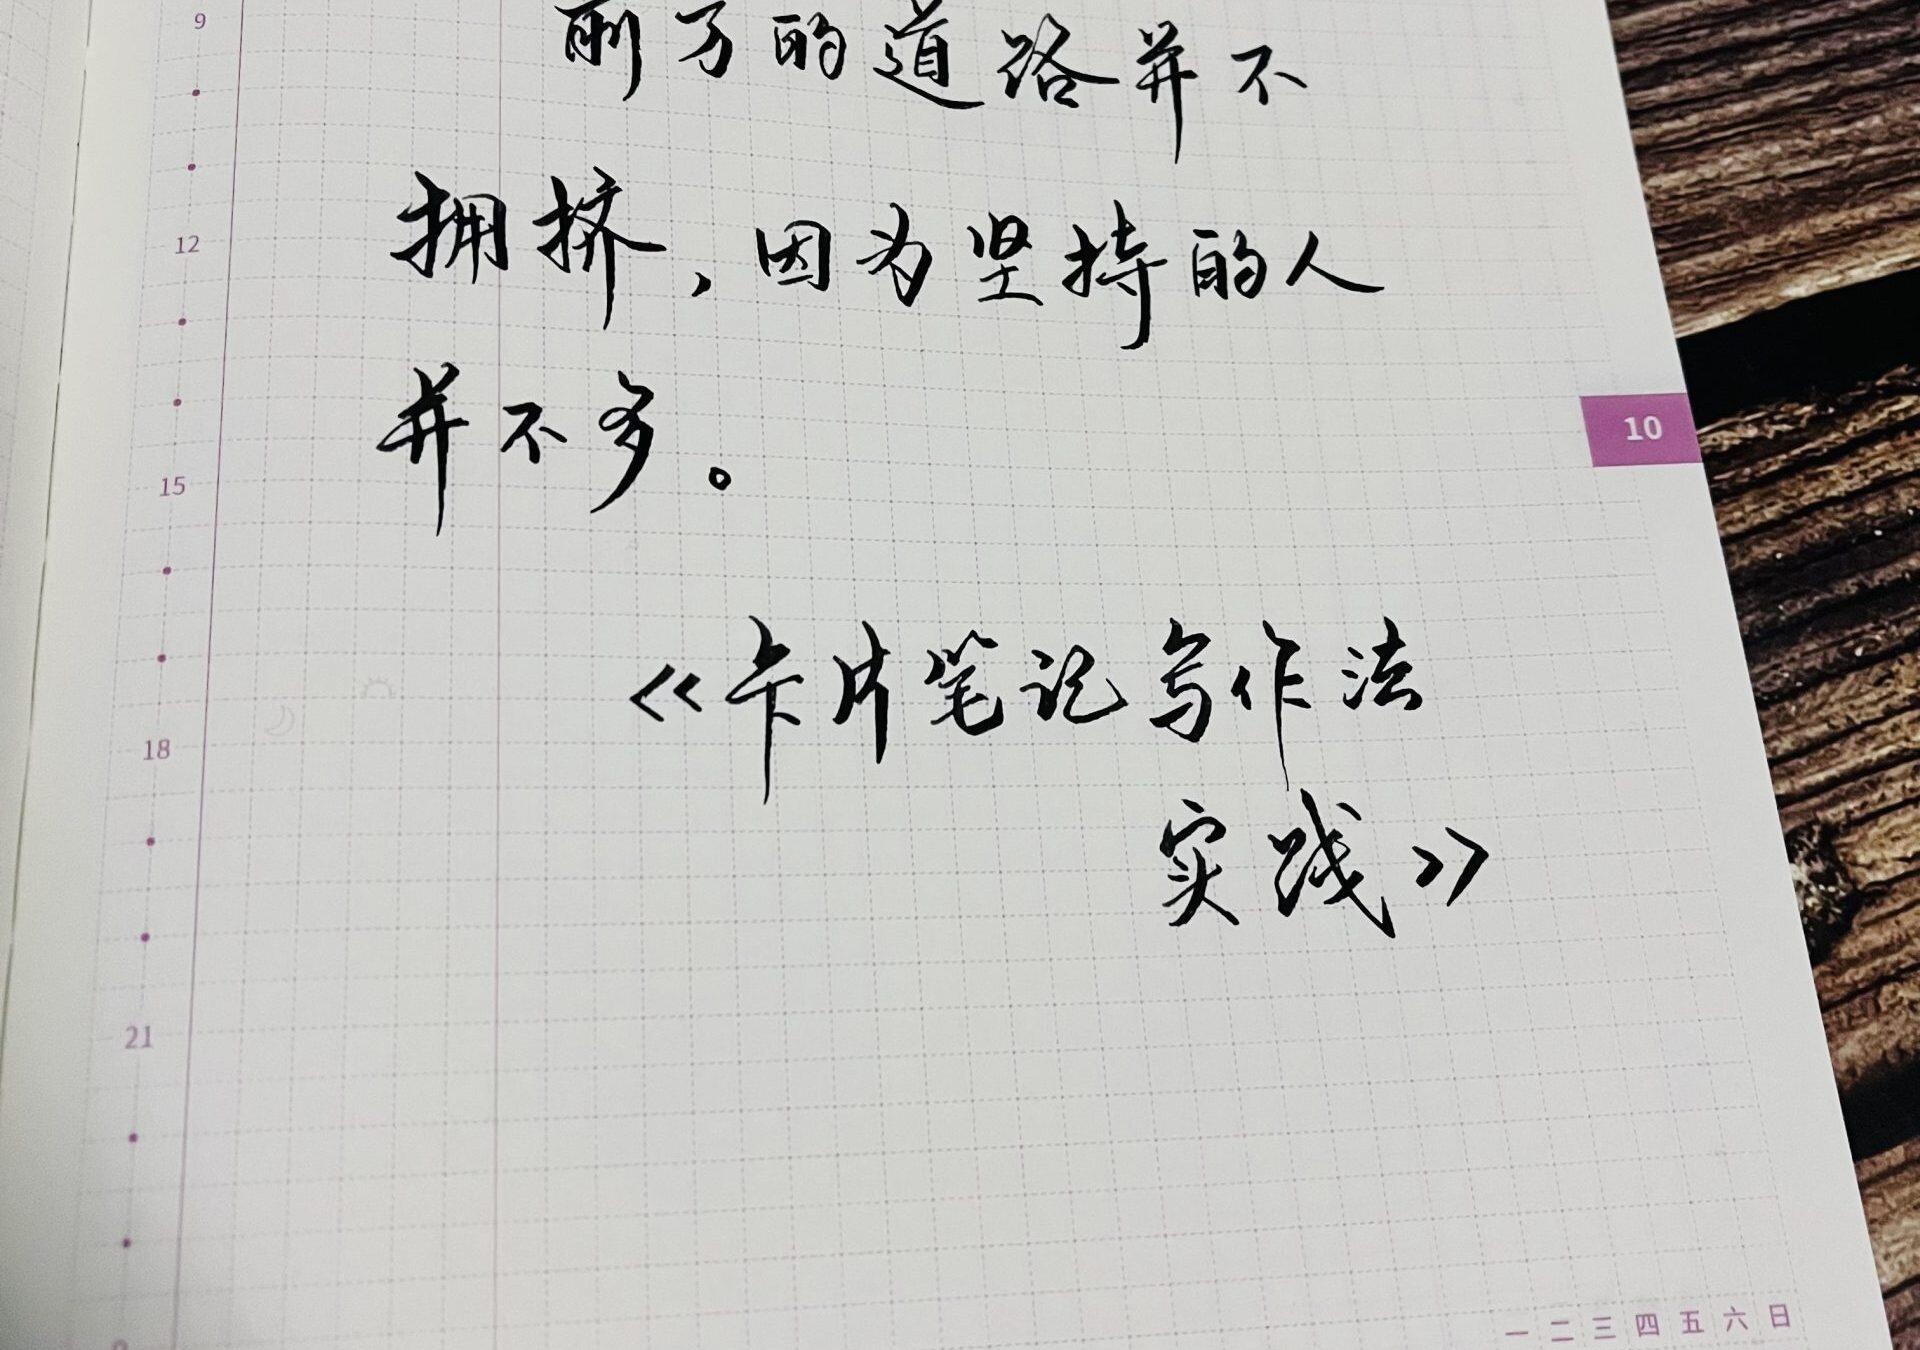 9
前方的道路并不
拥挤，因为坚持的人
12
并不多。
10
15
《卡片笔记写作法
18
实践》
21
一 二 三 四 五 六 日